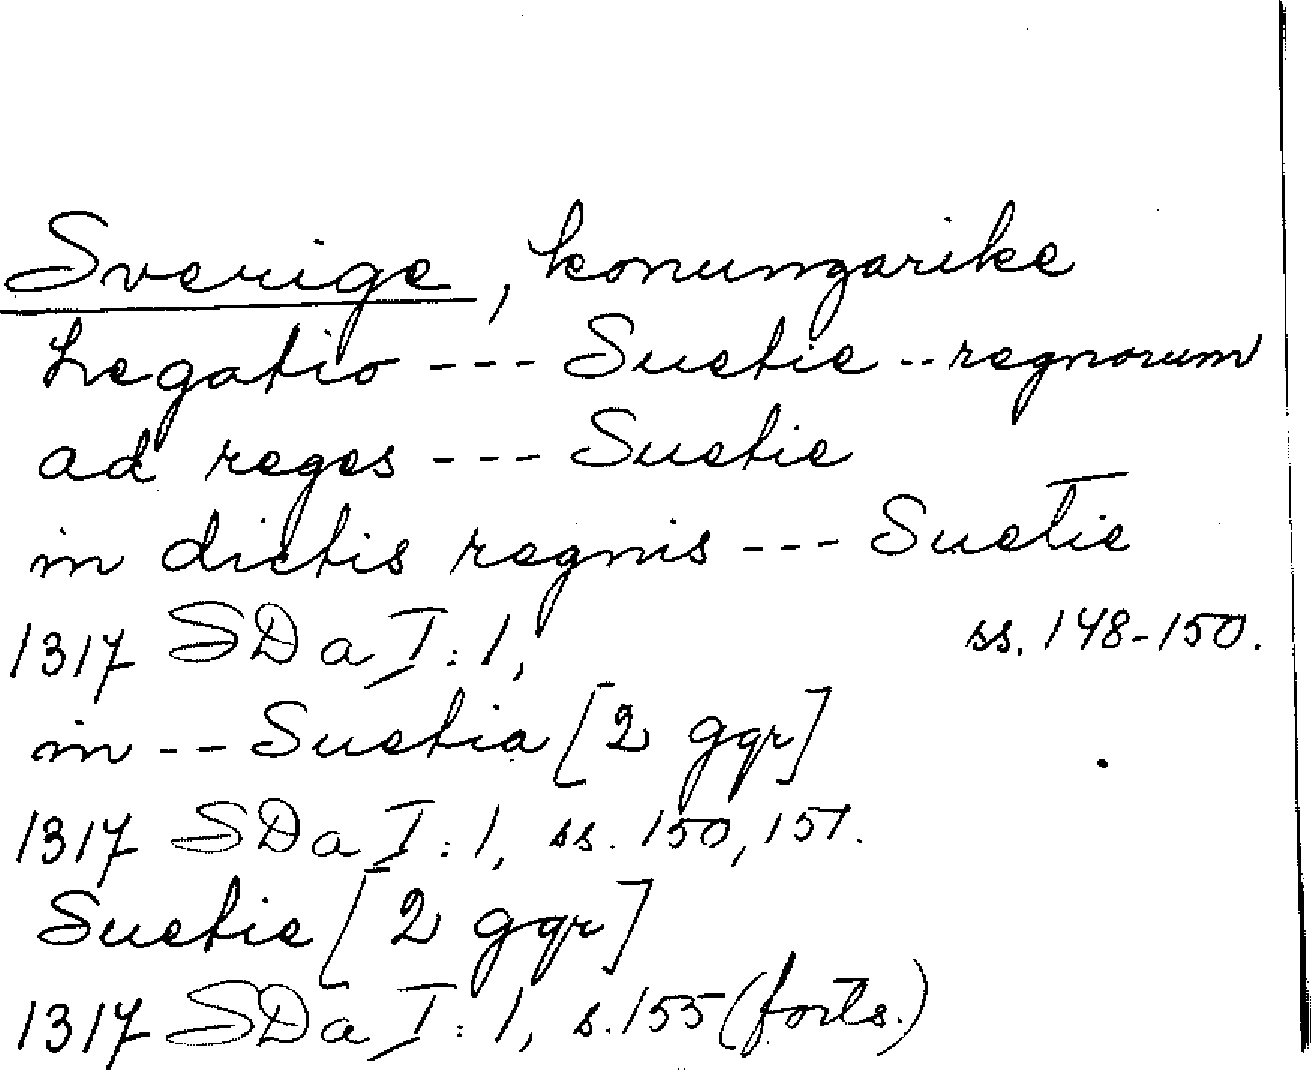 Sverige, konungarike
Legatio --- Suetie -- regnorum
ad reges --- Suetie
in dictis regnis --- Suetie
1317 SDa I:1, ss. 148-150.
in -- Suetia [2 ggr]
1317 SDa I:1, ss. 150, 151.
Suetie [2 ggr]
1317 SDa I:1, s. 155 (forts.)